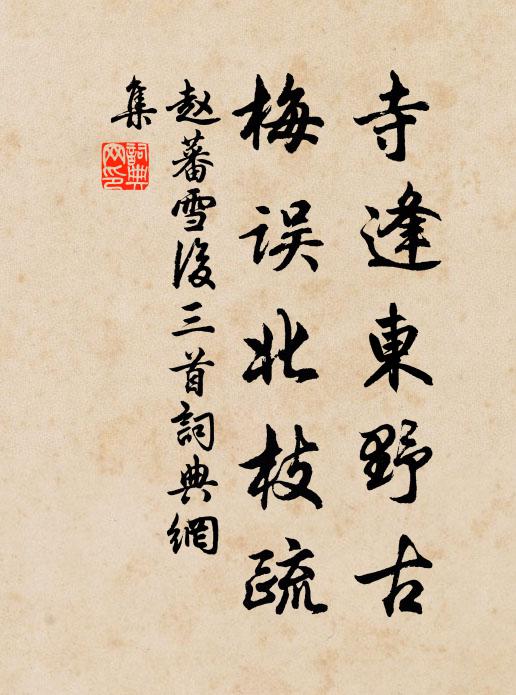 寺逢東野古
梅误北枝疏
赵蕃雪後三首詞典網
集
詞典网印